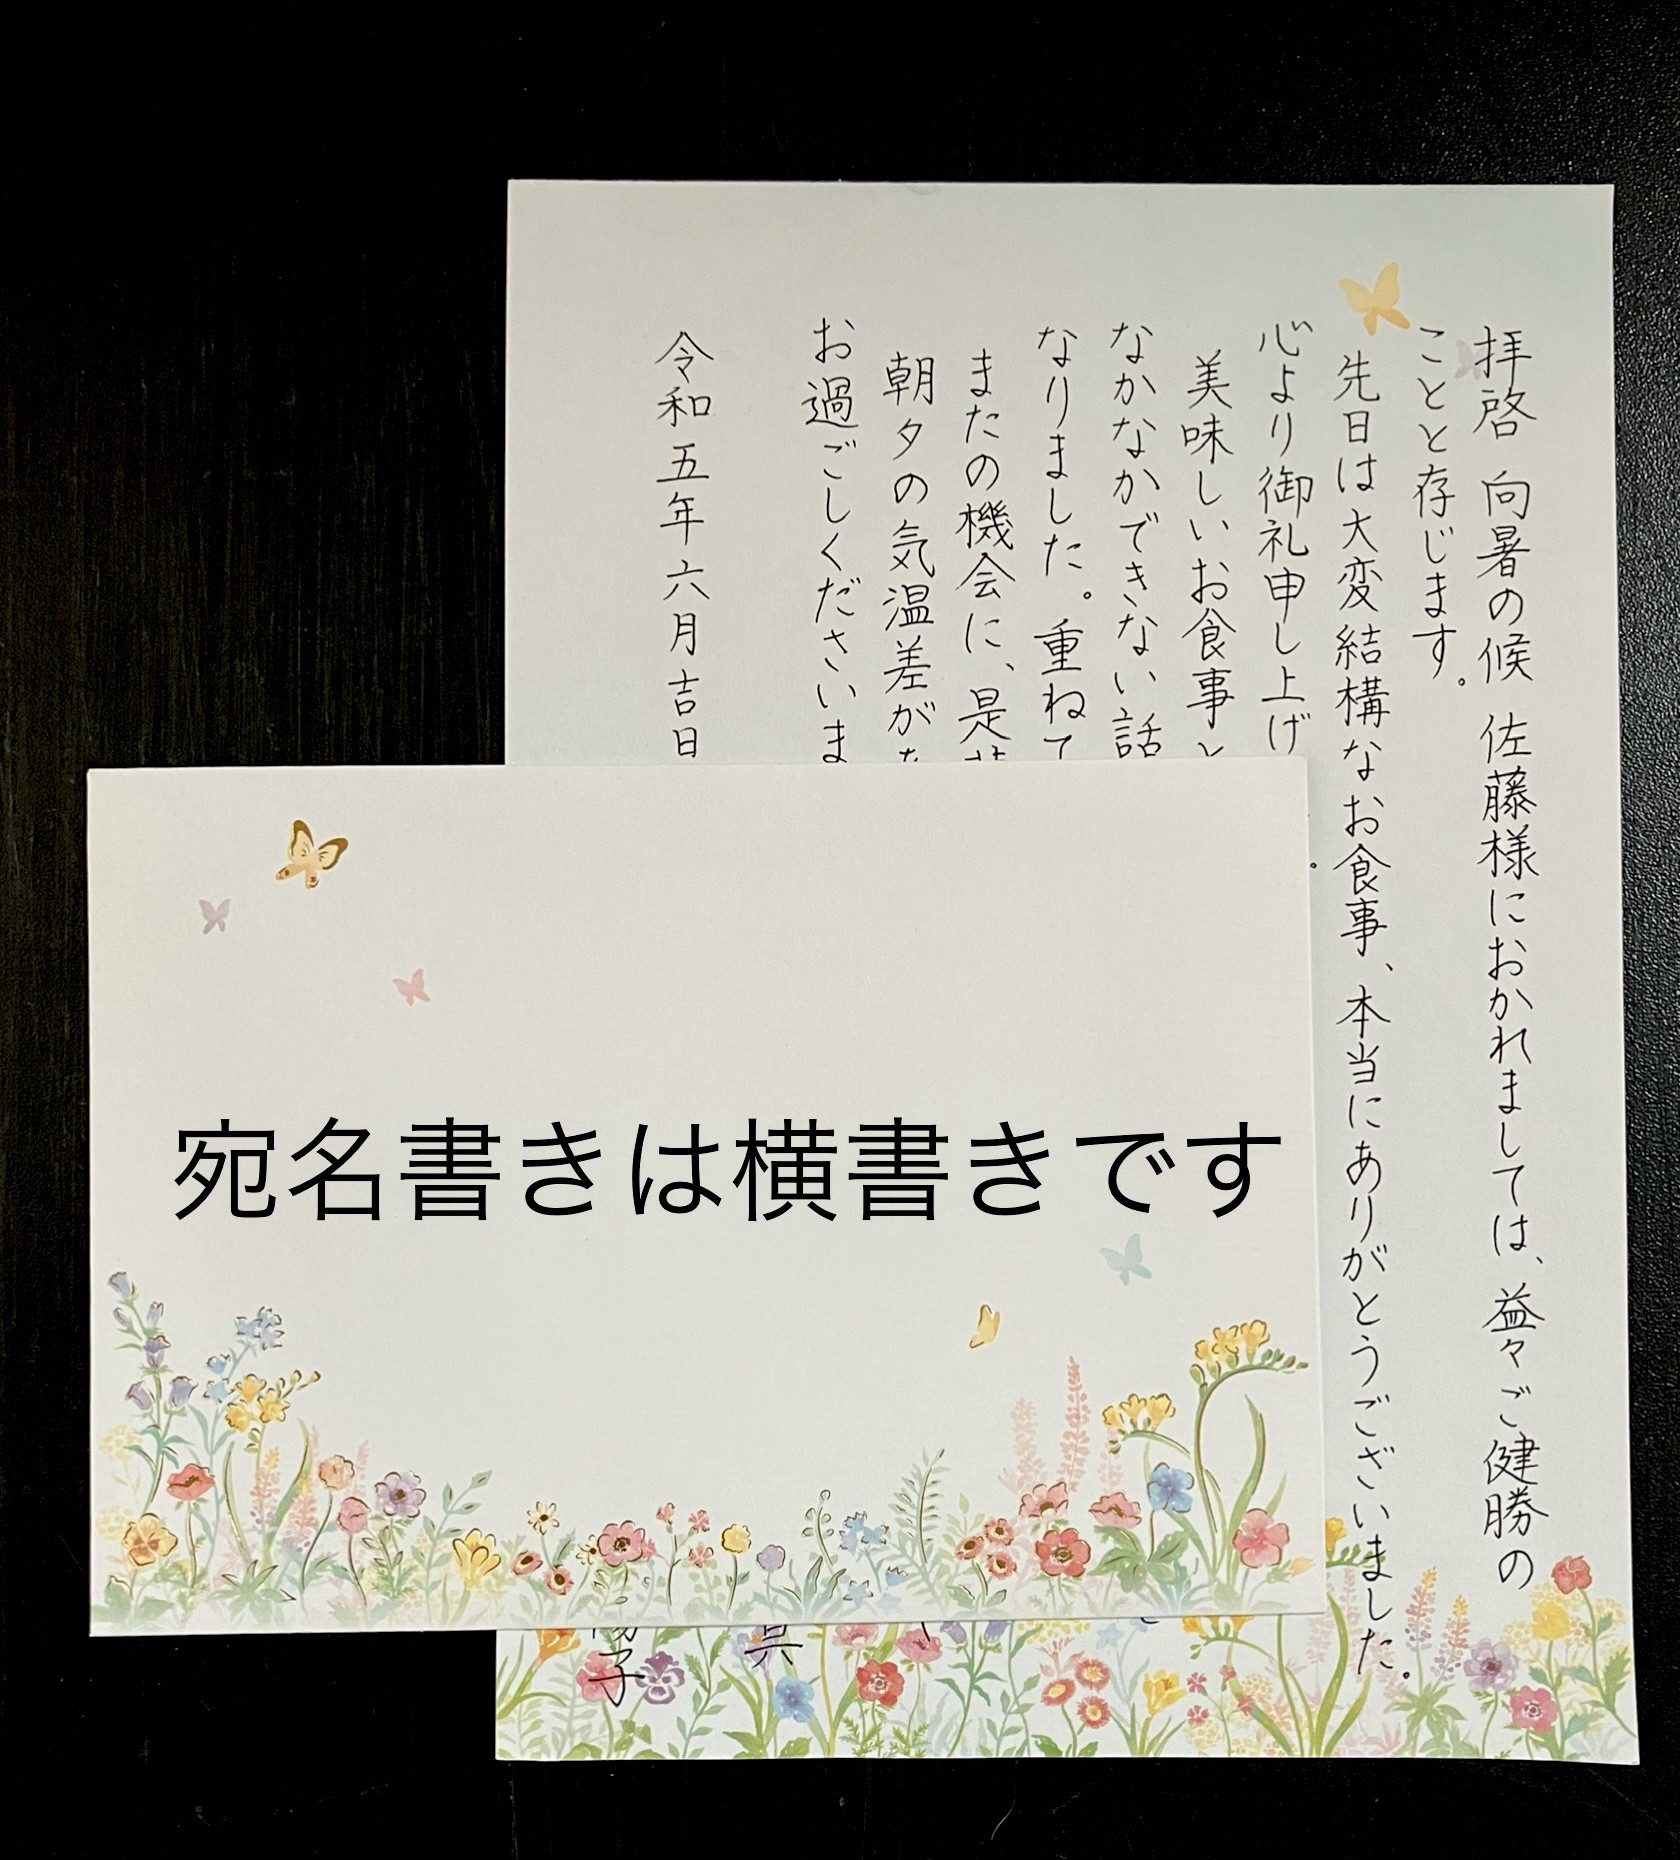 拝啓 向暑の候 佐藤様におかれましては、益々ご健勝の
ことと存じます。
先日は大変結構なお食事、本当にありがとうございました。
心より御礼申し上げ
美味しいお食事と
なかなかできない話
なりました。重ねて
またの機会に、是
朝夕の気温差が
お過ごしくださいま
令和五年六月吉日
子
宛名書きは横書きです